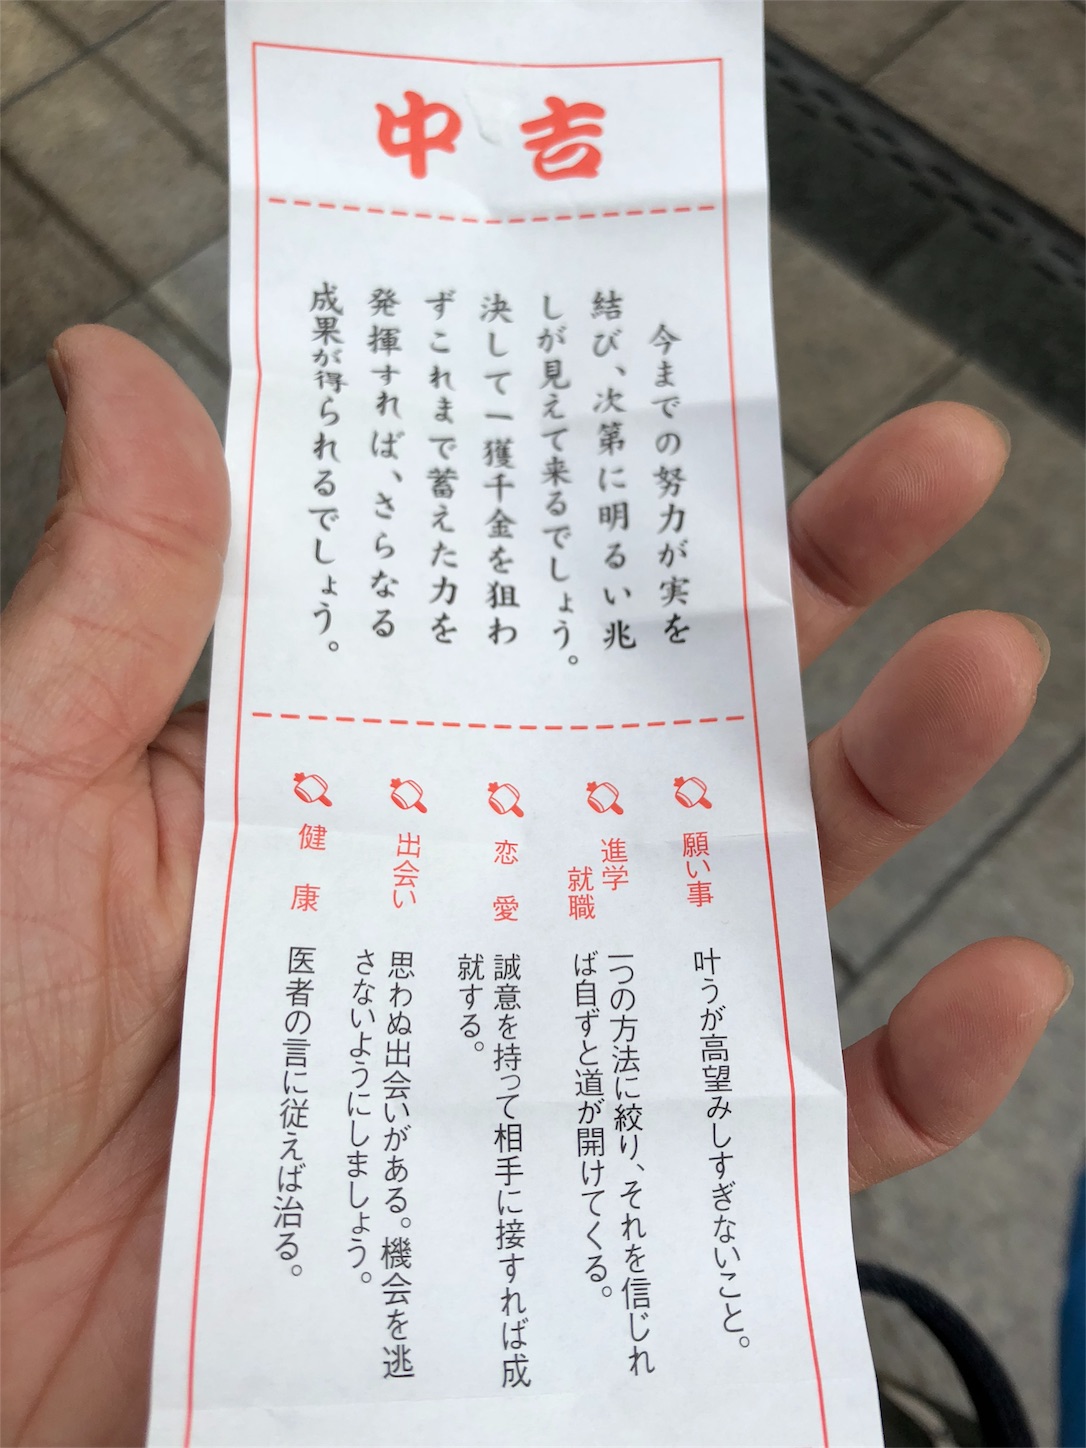 中吉
今までの努力が実を
結び、次第に明るい兆
しが見えて来るでしょう。
決して一獲千金を狙わ
ずこれまで蓄えた力を
発揮すれば、さらなる
成果が得られるでしょう。
願い事
叶うが高望みしすぎないこと。
進学
就職
一つの方法に絞り、それを信じれ
ば自ずと道が開けてくる。
恋愛
誠意を持って相手に接すれば成
就する。
出会い
思わぬ出会いがある。機会を逃
さないようにしましょう。
健康
医者の言に従えば治る。